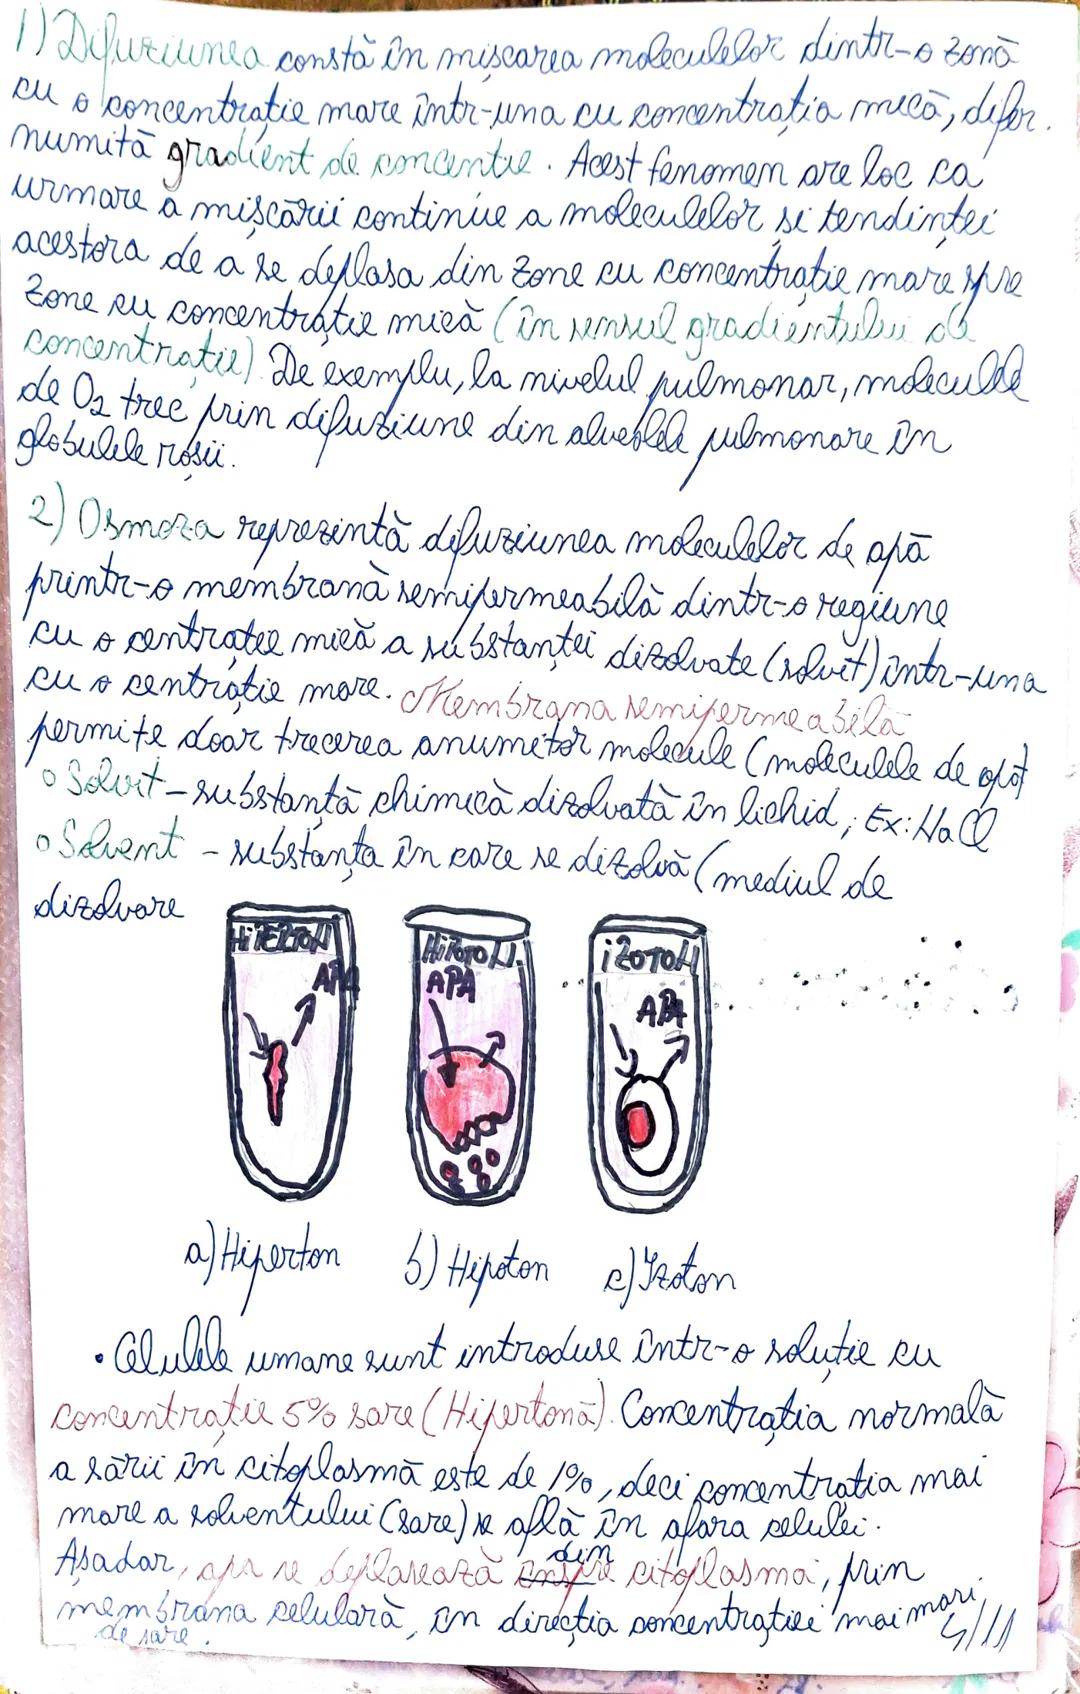 1) Difuziunea constă în mișcarea moleculelor dintr-o zonă
cu o concentrație mare într-una cu concentrația mică, difer.
numită gradient de concentrie. Acest fenomen are loc ca
urmare a mișcării continue a moleculelor și tendinței
acestora de a se deplasa din zone cu concentrație mare spre
zone cu concentrație mică (în sensul gradientului de
concentrație). De exemplu, la nivelul pulmonar, moleculele
de O2 trec prin difuziune din alveolele pulmonare în
globulele roșii.
2) Osmoza reprezintă difuziunea moleculelor de apă
printr-o membrană semipermeabilă dintr-o regiune
cu o centrație mică a substanței dizolvate (solvit) într-una
cu o centrație mare. Membrana semipermeabilă
permite doar trecerea anumitor molecule (moleculele de apă)
o Solvit - substanță chimică dizolvată în lichid; Ex: NaCl
o Solvent - substanța în care se dizolvă (mediul de
dizolvare
HiPERTON HiPOTON iZOTON
APA APA APA
a) Hiperton b) Hipoton c) Izoton
• Celulele umane sunt introduse într-o soluție cu
concentrație 5% sare (Hipertonă). Concentrația normală
a sării în citoplasmă este de 1%, deci concentratia mai
mare a solventului (sare) se află în afara celulei.
Așadar, apa se deplasează din citoplasma, prin
membrana celulară, în direcția concentrației mai mari
de sare.